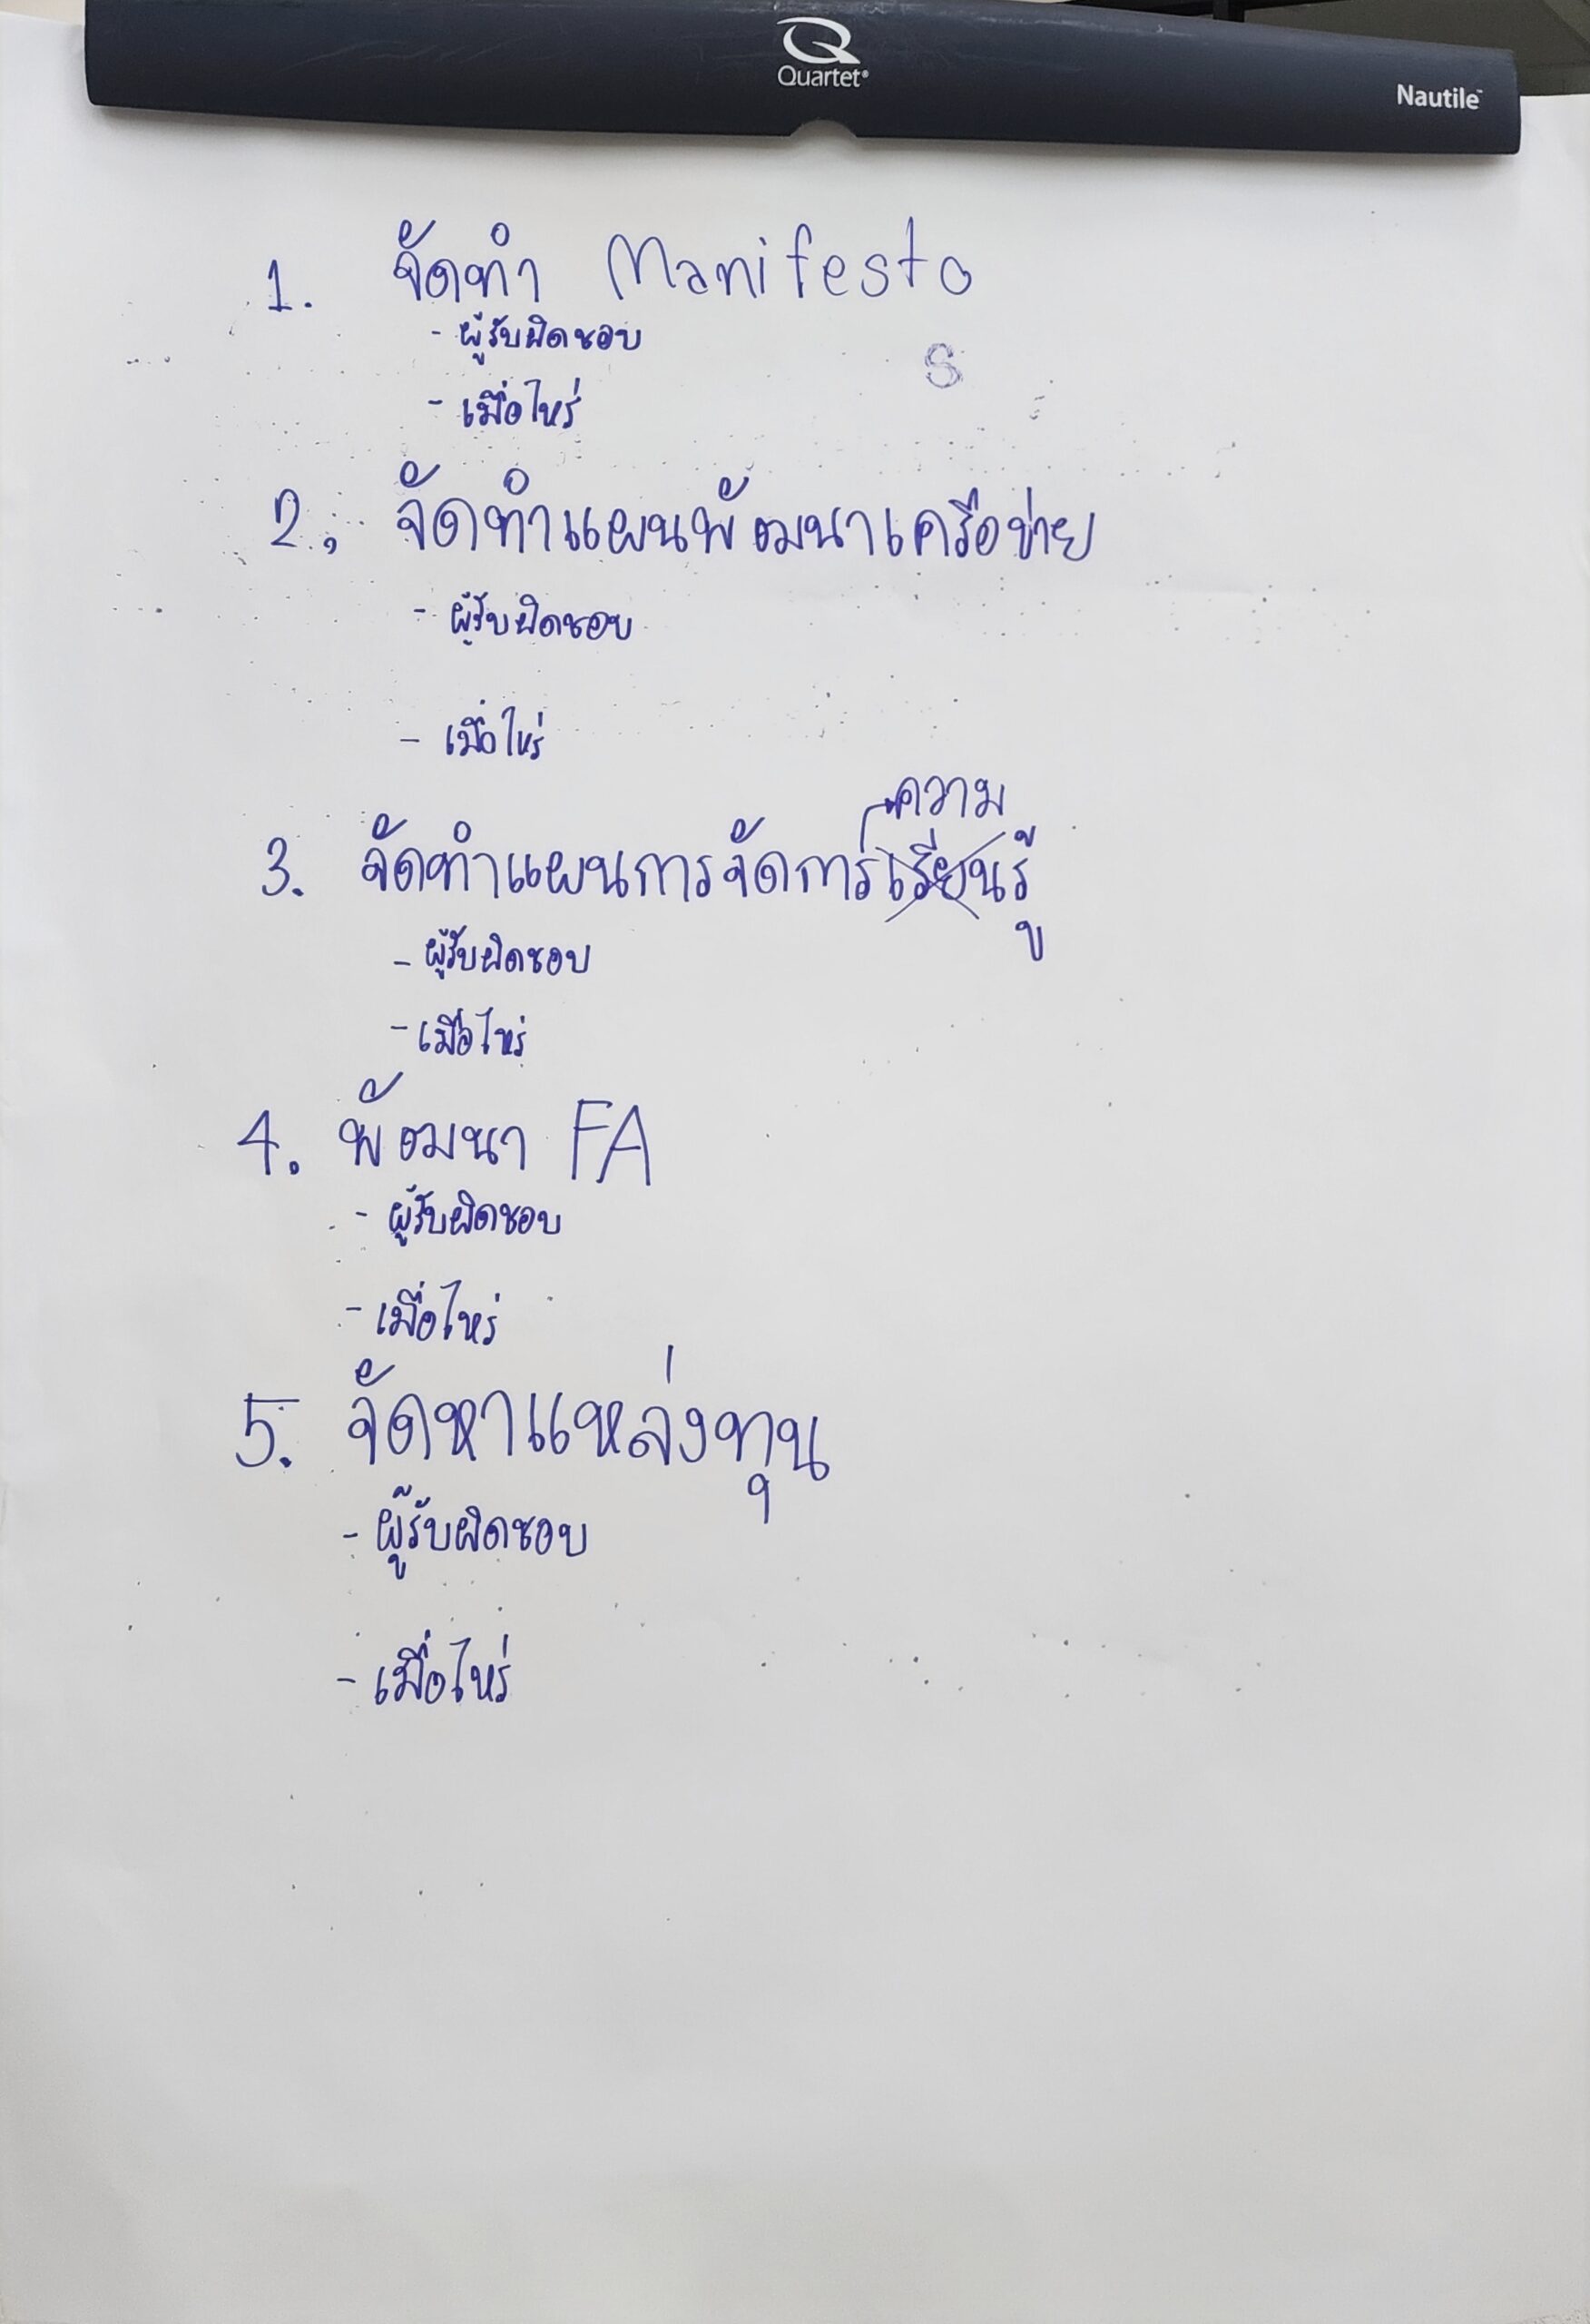 Quartet
Nautile
1. จัดทำ Manifesto
- ผู้รับผิดชอบ
S
- เมื่อไหร่
2. จัดทำแผนพัฒนาเครือข่าย
- ผู้รับผิดชอบ
- เมื่อไหร่
ความ
3. จัดทำแผนการจัดการเรียนรู้
- ผู้รับผิดชอบ
- เมื่อไหร่
4. พัฒนา FA
- ผู้รับผิดชอบ
- เมื่อไหร่
5. จัดหาแหล่งทุน
- ผู้รับผิดชอบ
- เมื่อไหร่